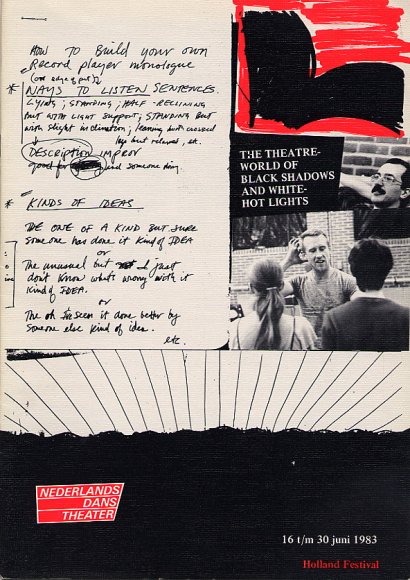 HOW TO Build your own
Record player monologue
(on edge of pit)
* WAYS TO LISTEN SENTENCES.
LYING; STANDING; HALF-RECLINING
but WITH LIGHT SUPPORT; STANDING BUT
with slight inclination; leaning but with crossed
legs but relaxed, etc.
DESCRIPTION IMPROV
good for find someone
* KINDS OF IDEAS
THE ONE OF A KIND BUT SURE
Someone has done it kind of IDEA
or
The unusual but I just
don't know what's wrong with it
kind of IDEA.
or
The oh I've seen it done better by
someone else kind of idea.
etc.
THE THEATRE-
WORLD OF
BLACK SHADOWS
AND WHITE-
HOT LIGHTS
NEDERLANDS
DANS
THEATER
16 t/m 30 juni 1983
Holland Festival